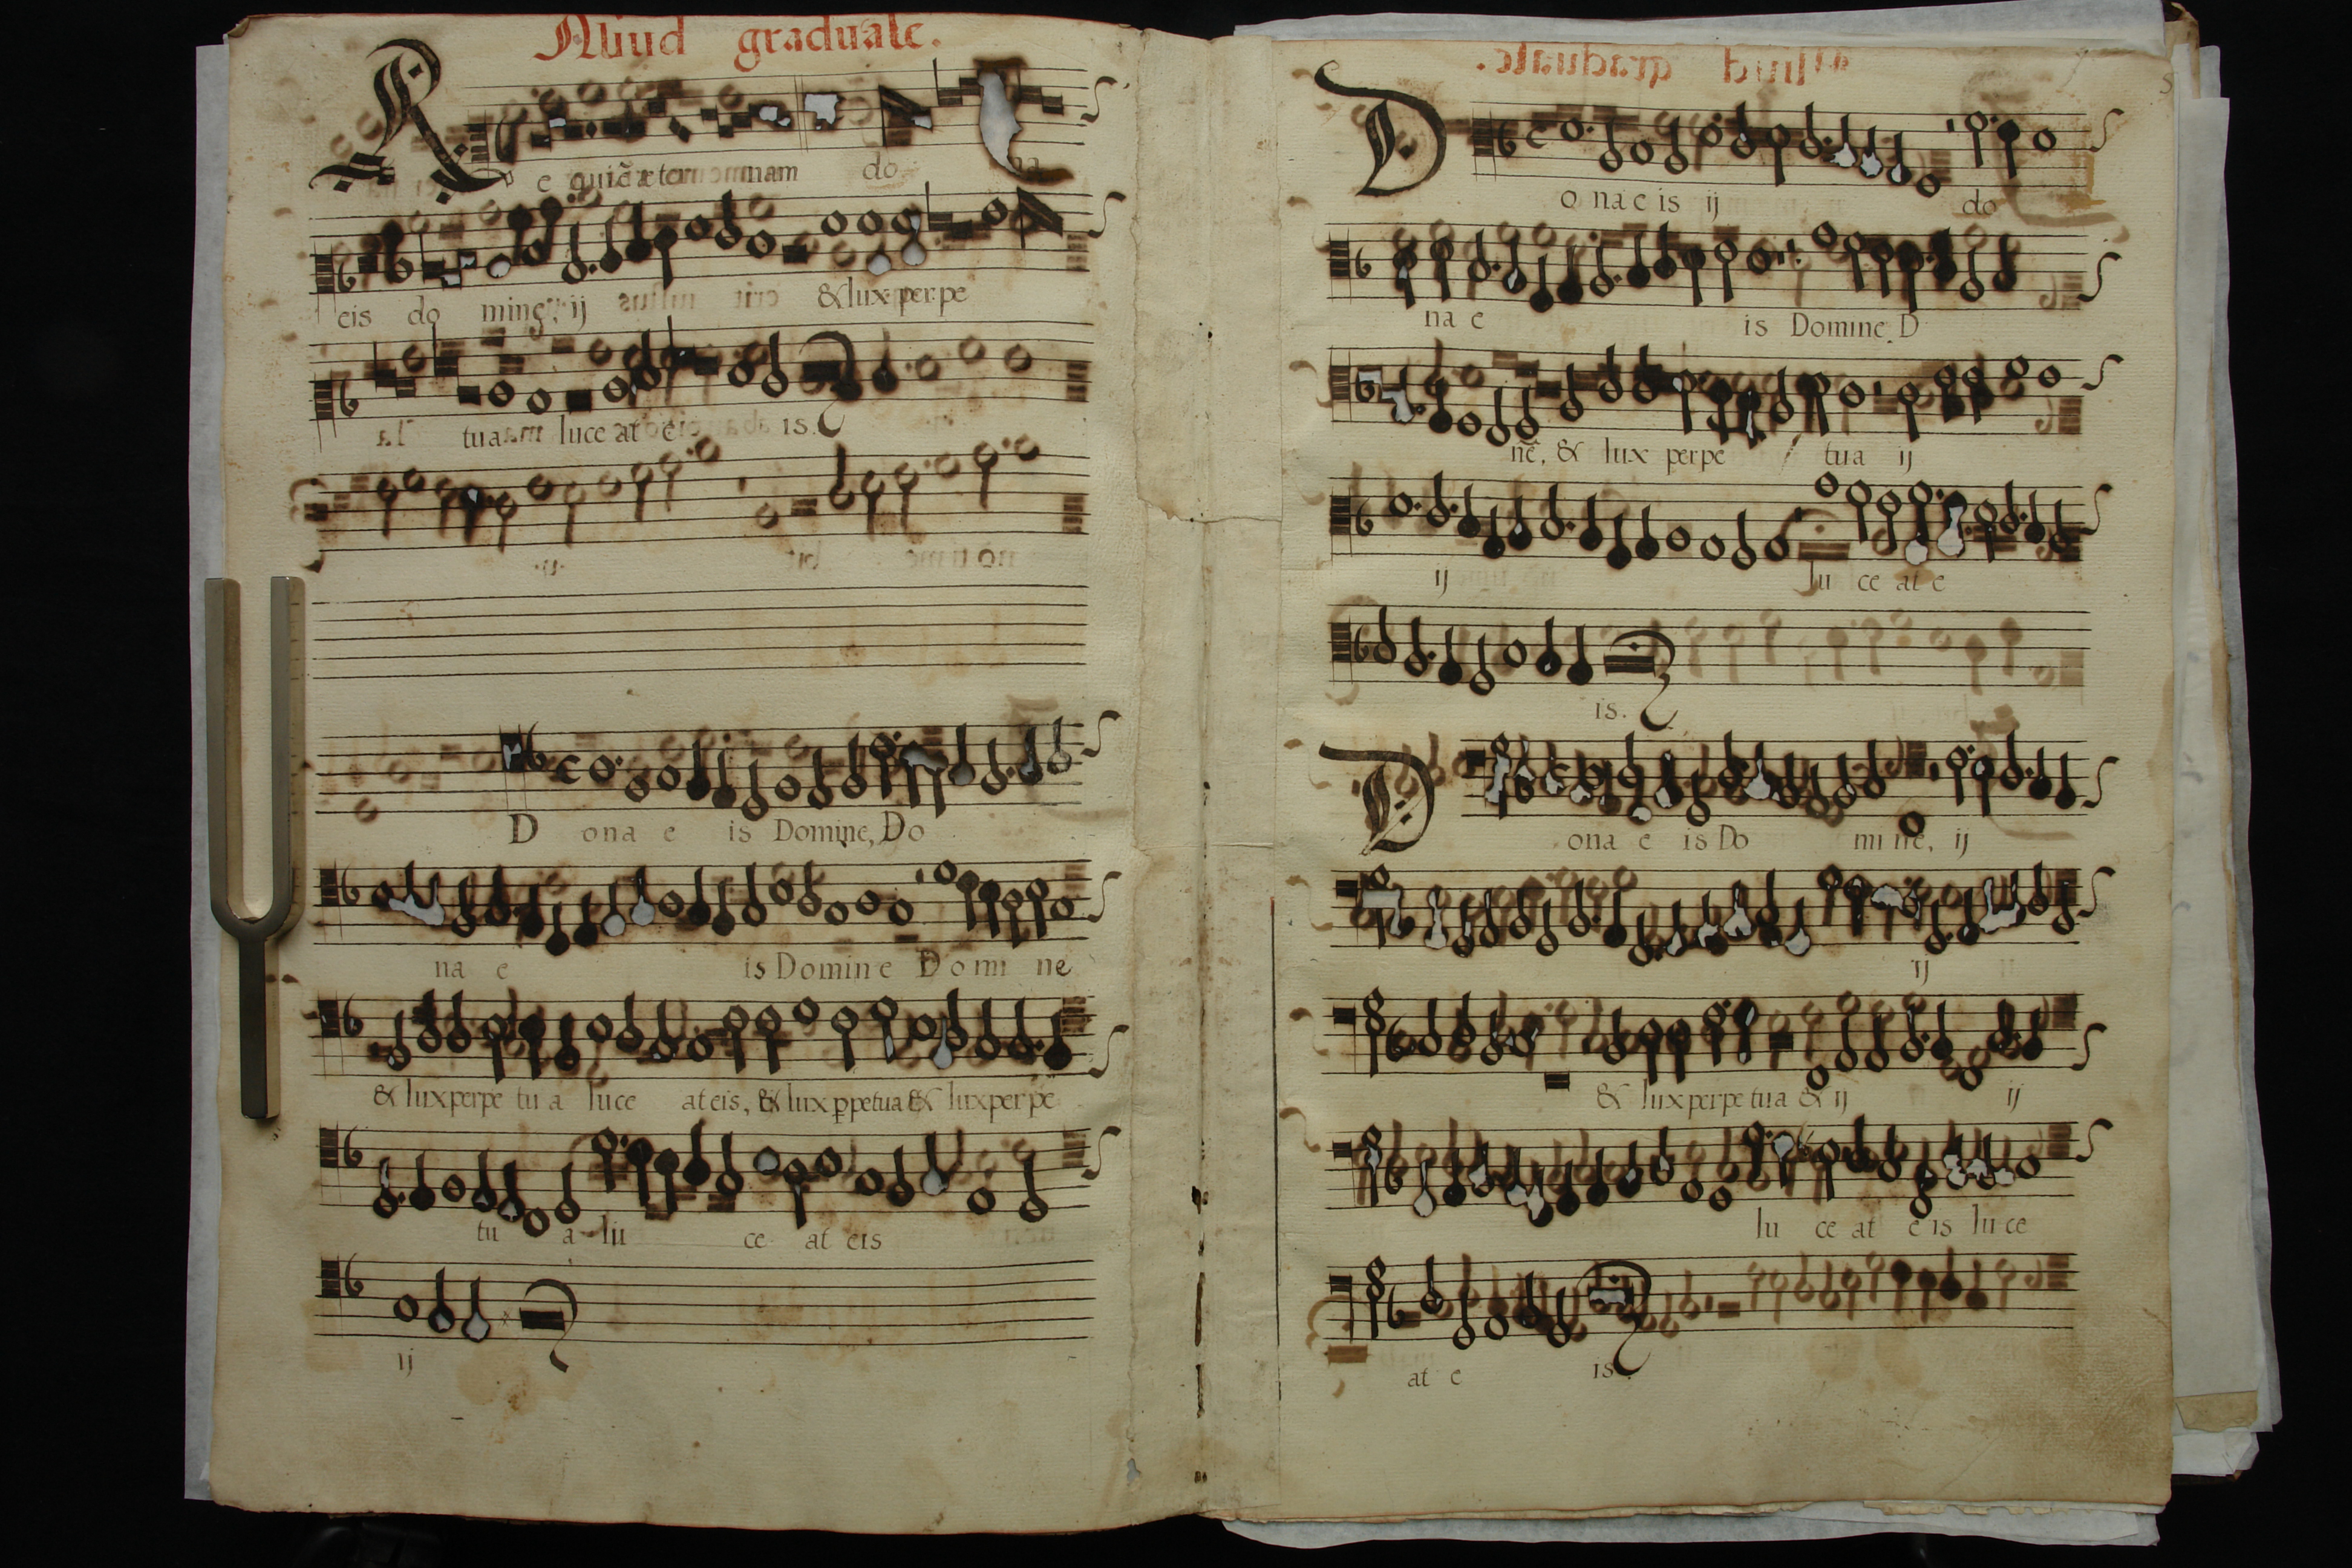 Aliud graduale.
R e quiẽ æter nam do na
eis do mine, ij & lux per pe
tua luce at e is.
D ona e is Domine, Do
na e is Domine Do mi ne
& lux perpe tu a luce at eis, & lux ꝑpetua & lux per pe
tu a lu ce at eis
ij
D o na e is ij do
na e is Domine D
nẽ, & lux perpe tua ij
ij lu ce at e
is.
D ona e is Do mi ne, ij
ij
& lux perpe tua & ij ij
lu ce at e is lu ce
at e is.